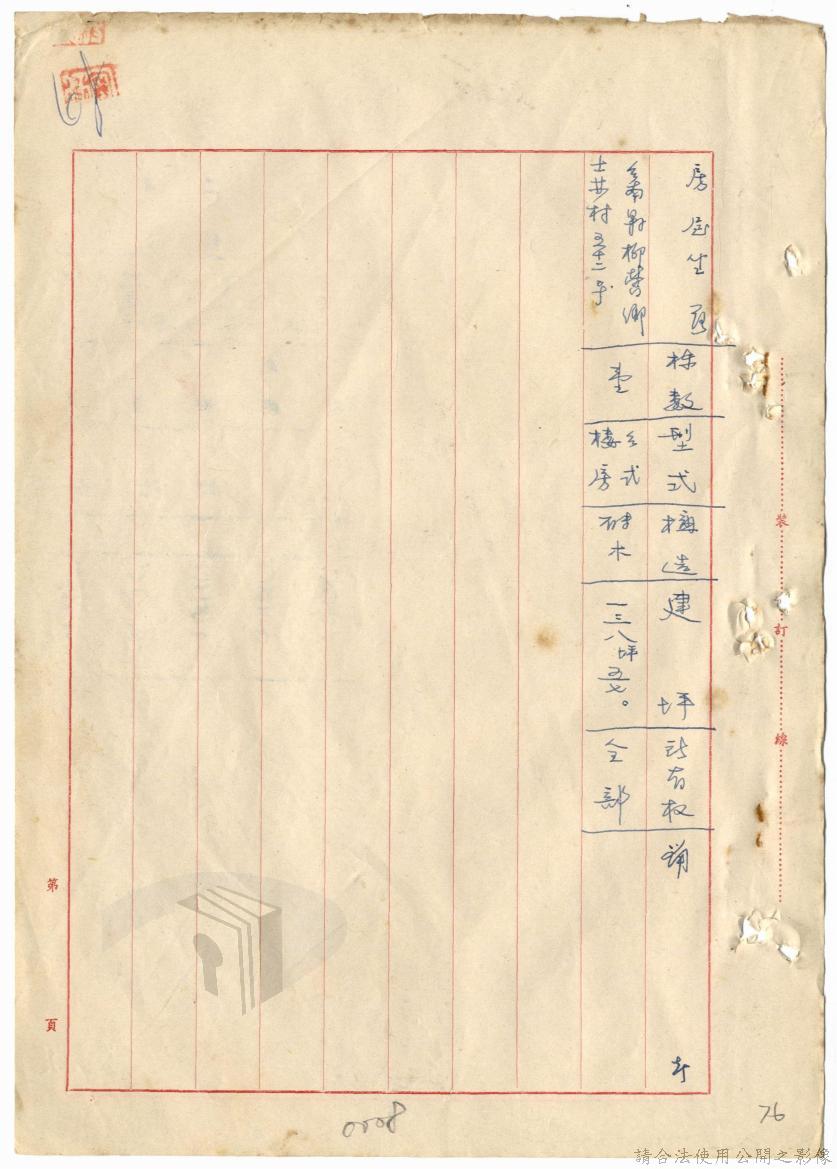 房屋坐落
棟數
型式
構造
建坪
所有权
備考
台南縣柳營鄉
士林村五十二号
壹
台式
樓房
磚木
一三八坪五七。
全部
裝
訂
線
第
頁
0008
76
請合法使用公開之影像